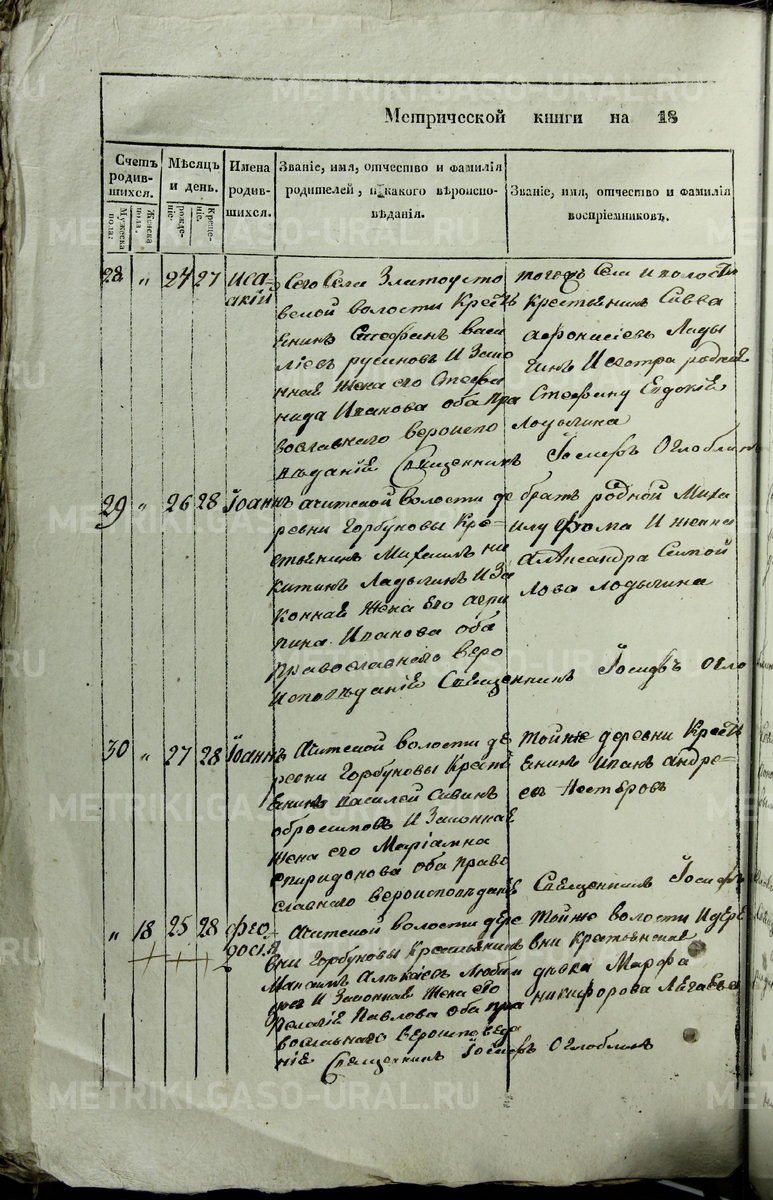 Метрической книги на 18
Счетъ родив-шихся.
Мужеска пола.
Женска пола.
Мѣсяцъ и день.
рожде-нія.
Креще-нія.
Имена родив-шихся.
Званіе, имя, отчество и фамилія родителей, и какого вѣроиспо-вѣданія.
Званіе, имя, отчество и фамилія воспріемниковъ.
28 " 24 27 Иса-
акій
Сего Села Златоусто
вской волости Крестъ
янинъ Стефанъ Васи
ліевъ русиновъ И Зако
нная Жена его Стефа
нида Иванова оба пра
вославнаго вероиспо
ведания
тогожъ Села и волости
Крестьянинъ Савва
Лады
гинъ И сестра родная
Стефану Евдокия
лодыгина
Священникъ Іосифъ Оглоблинъ
29 " 26 28 Іоаннъ
ачитской волости де
ревни Горбуновы Кре-
стьянинъ Михаилъ ни
китинъ Ладыгинъ И За
конная Жена Его агри
пина Иванова оба
Православнаго Веро
Исповѣданія
братъ родной Миха
илу Фома И женка
александра
лова лодыгина
Священникъ Іосифъ Огло
30 " 27 28 Іоаннъ
Ачитской волости де
ревни Горбуновы Крест
янинъ василей Савинъ
обросимовъ И Законная
Жена его Маріамна
спиридонова оба право
славнаго вероисповѣданія
тойже деревни Крест
янинъ Иванъ андре-
евъ Нестеровъ
Священникъ Іосифъ
" 18 25 28 Фео-
досія
Ачитской волости дере
вни Горбуновы Крестьянинъ
И Законная Жена его
Пелагія Павлова оба пра
вославнаго вероисповеда
ніе
Тойже волости И дере
вни Крестьянская
девка Марфа
никифорова
Священникъ Іосифъ Оглоблинъ
METRIKI.GASO-URAL.RU